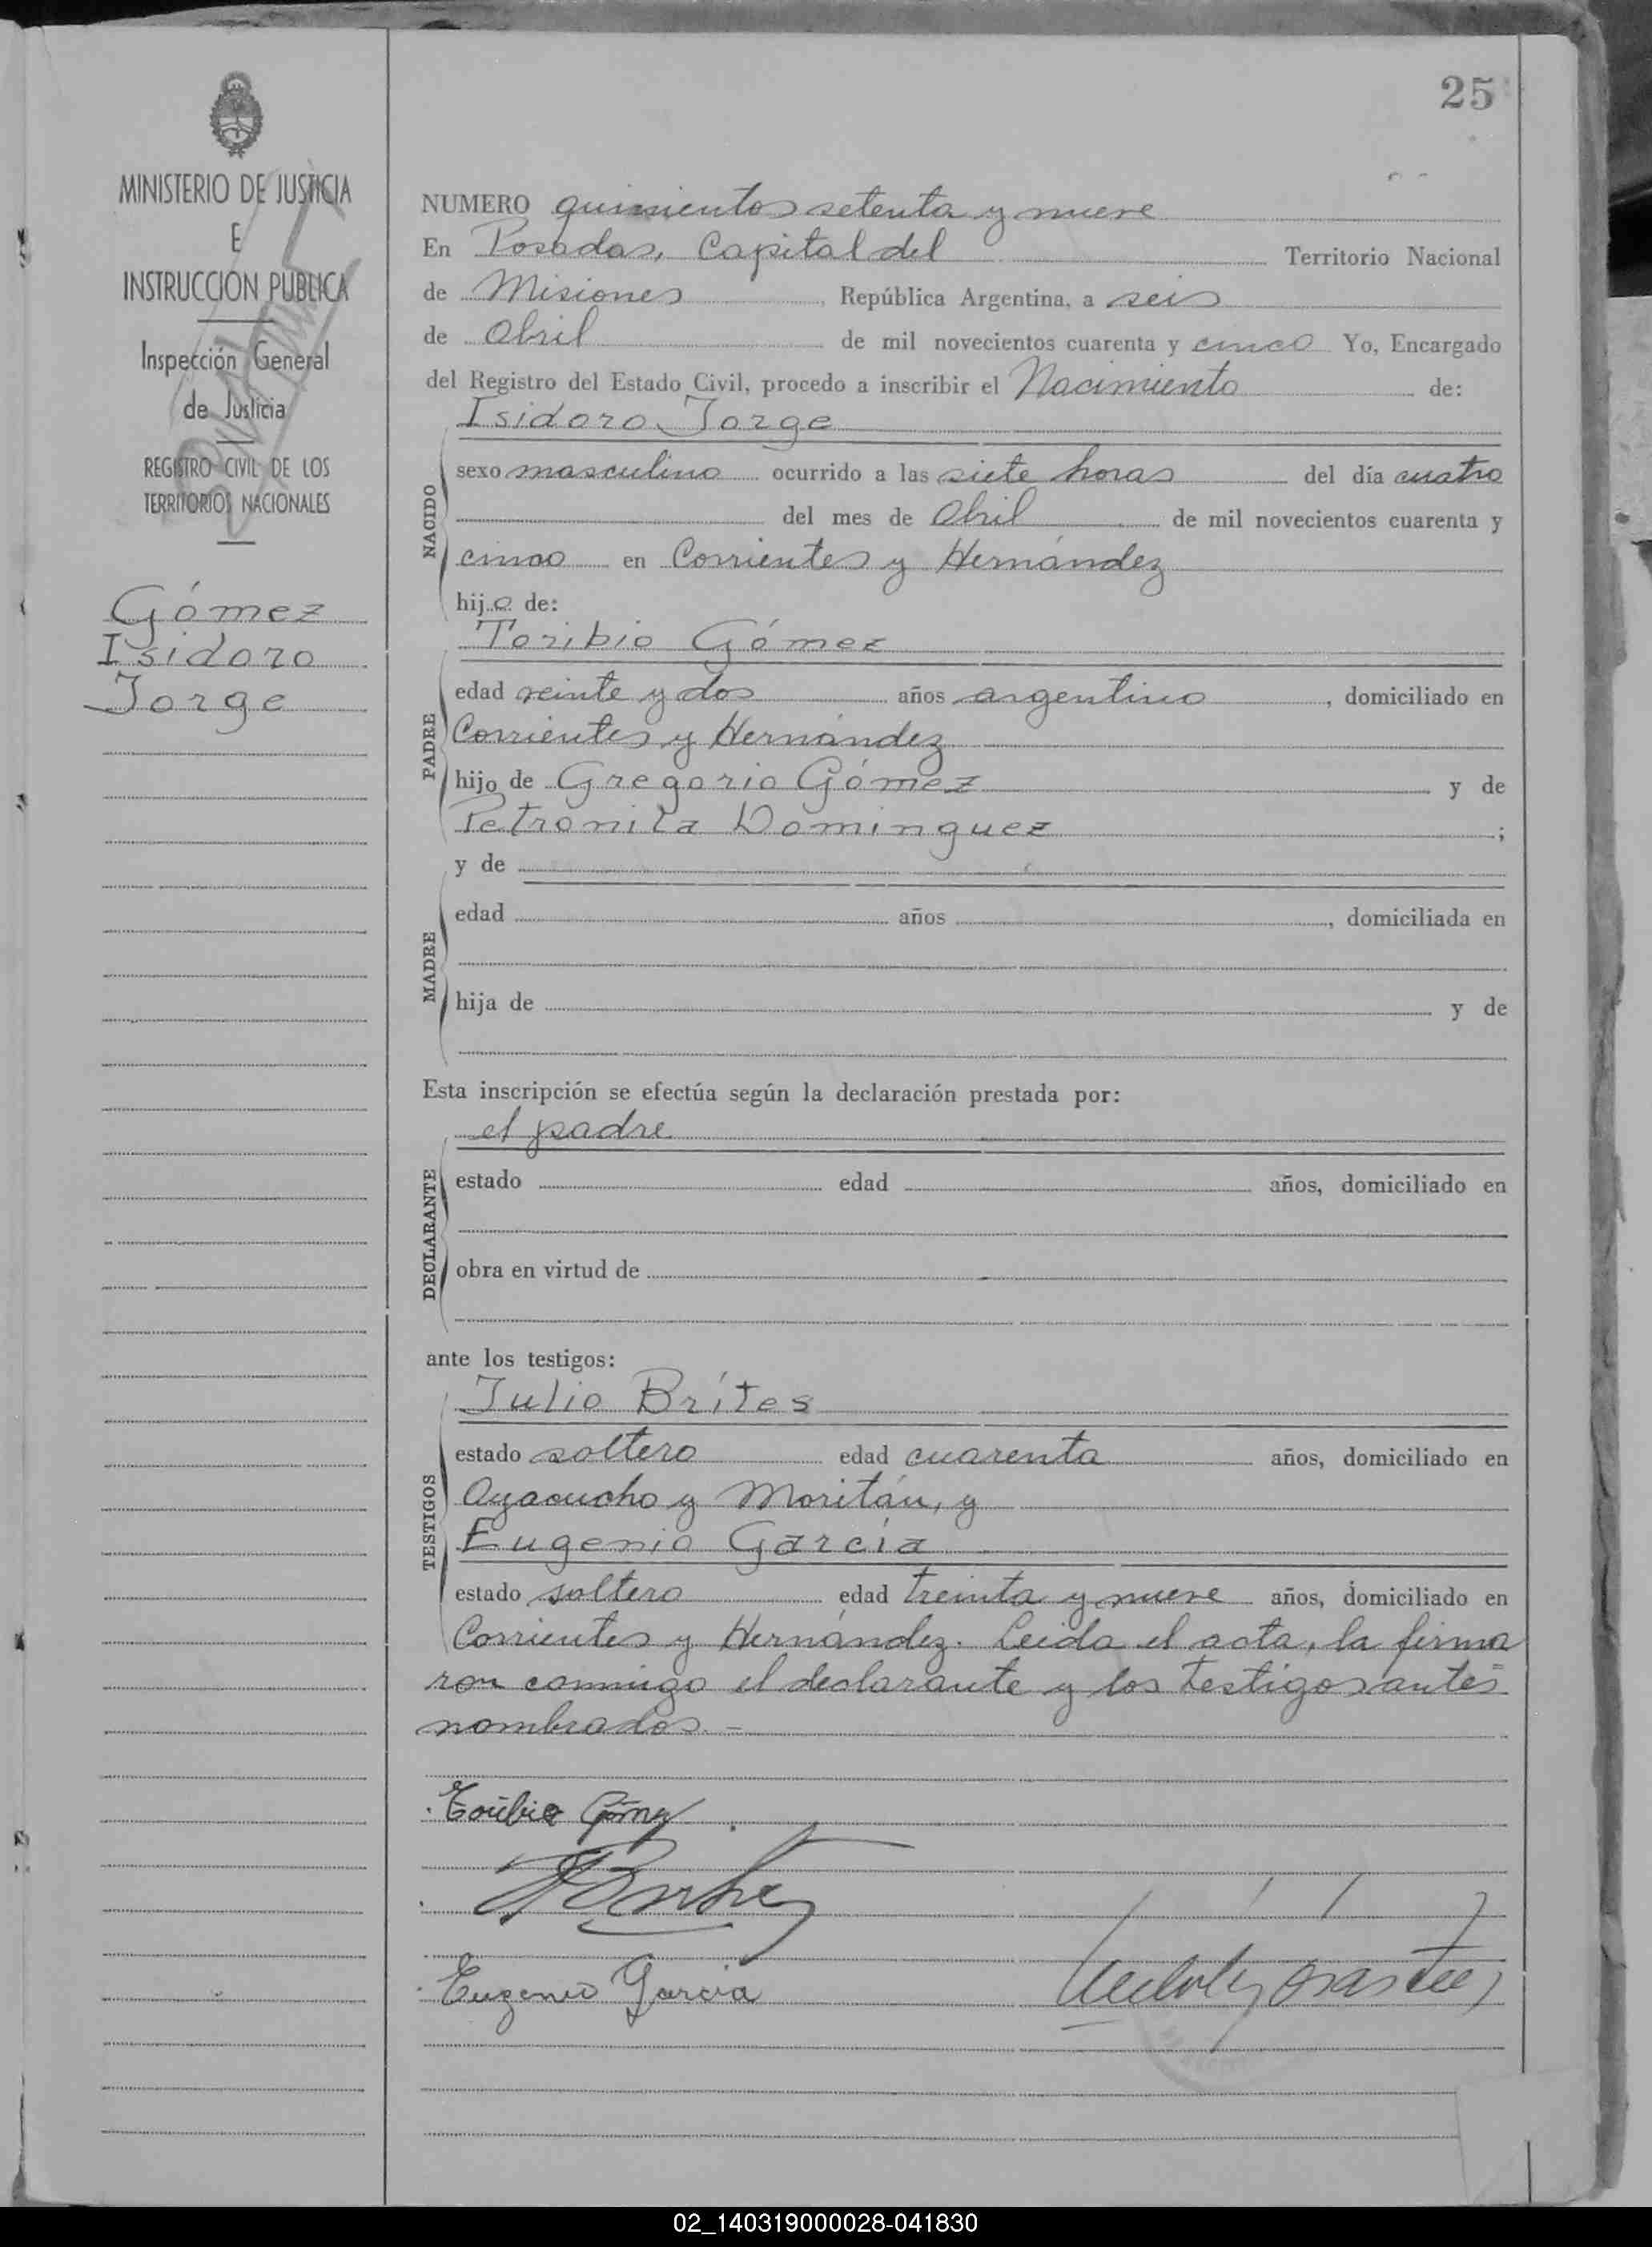 25
MINISTERIO DE JUSTICIA
E
INSTRUCCION PUBLICA
Inspección General
de Justicia
REGISTRO CIVIL DE LOS
TERRITORIOS NACIONALES
Gómez
Isidoro
Jorge
NUMERO quinientos setenta y nueve
En Posadas, Capital del Territorio Nacional
de Misiones, República Argentina, a seis
de Abril de mil novecientos cuarenta y cinco Yo, Encargado
del Registro del Estado Civil, procedo a inscribir el Nacimiento de:
Isidoro Jorge
NACIDO
sexo masculino ocurrido a las siete horas del día cuatro
del mes de Abril de mil novecientos cuarenta y
cinco en Corrientes y Hernández
hijo de:
Toribio Gómez
PADRE
edad veinte y dos años argentino, domiciliado en
Corrientes y Hernández
hijo de Gregorio Gómez y de
Petronila Dominguez;
y de
MADRE
edad años, domiciliada en
hija de y de
Esta inscripción se efectúa según la declaración prestada por:
el padre
DECLARANTE
estado edad años, domiciliado en
obra en virtud de
ante los testigos:
Julio Brítes
TESTIGOS
estado soltero edad cuarenta años, domiciliado en
Ayacucho y Moritán, y
Eugenio García
estado soltero edad treinta y nueve años, domiciliado en
Corrientes y Hernández. Leida el acta, la firma
ron conmigo el declarante y los testigos antes
nombrados.-
Toribio Gómez
Eugenio Garcia
02_140319000028-041830